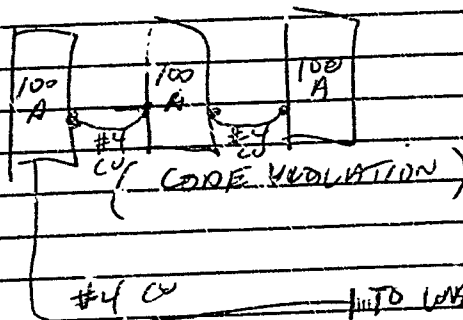 100 A
100 A
100 A
#4 CU
#4 CU
( CODE VIOLATION )
#4 CU
TO